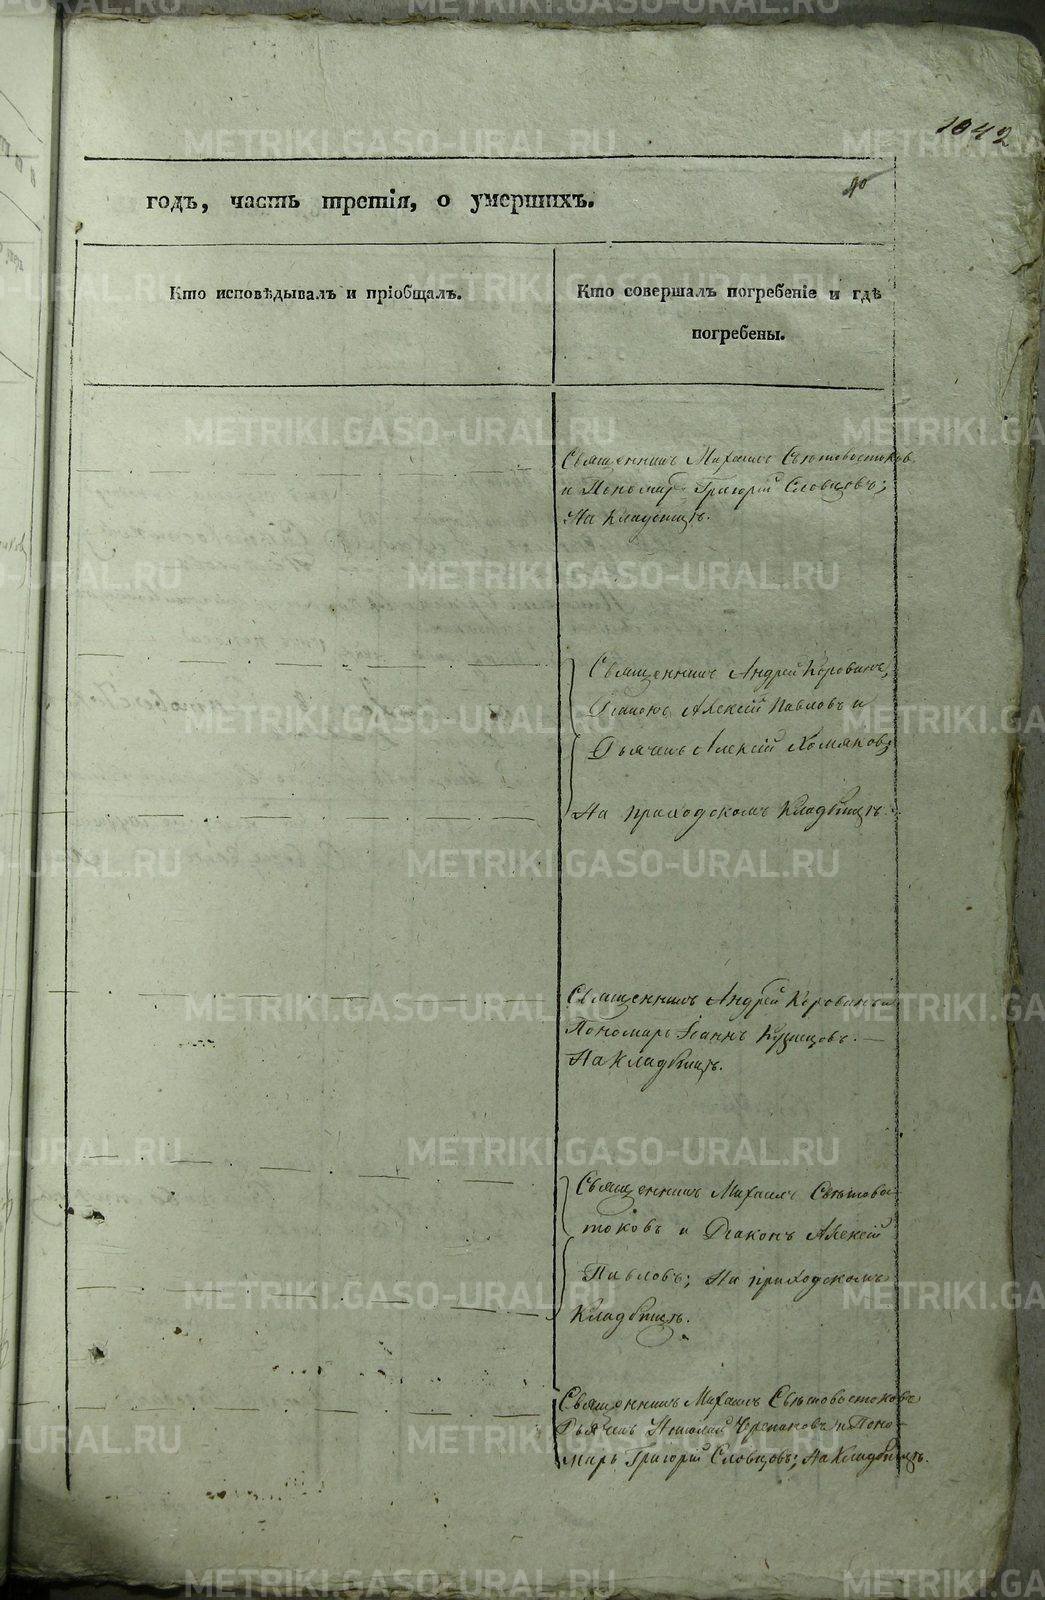 1042
годъ, часть третія, о умершихъ.
Кто исповѣдывалъ и пріобщалъ.
Кто совершалъ погребеніе и гдѣ
погребены.
Священникъ Михаилъ Свѣтовостоковъ
и Пономарь Григорій Словцовъ;
На Кладбищѣ.
Священникъ Андрей Коровинъ,
Діаконъ Алексій Павловъ и
Дьячекъ Алексій Хомяковъ;
На приходскомъ Кладбищѣ.
Священникъ Андрей Коровинъ и
Пономарь Іоаннъ Кузнецовъ.
На Кладбищѣ.
Священникъ Михаилъ Свѣтовос-
токовъ и Діаконъ Алексій
Павловъ; На приходскомъ
Кладбищѣ.
Священникъ Михаилъ Свѣтовостоковъ
Дьячекъ Николай Черепановъ и Поно-
марь Григорій Словцовъ; На Кладбищѣ.
METRIKI.GASO-URAL.RU